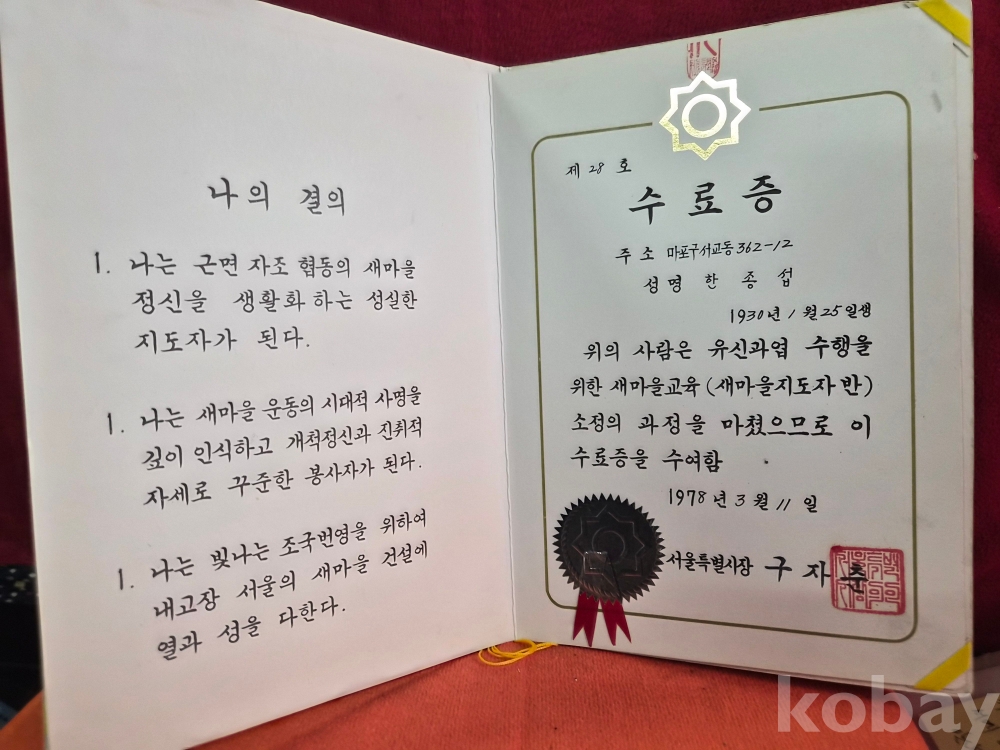 나의 결의
1. 나는 근면 자조 협동의 새마을
정신을 생활화 하는 성실한
지도자가 된다.
1. 나는 새마을 운동의 시대적 사명을
깊이 인식하고 개척정신과 진취적
자세로 꾸준한 봉사자가 된다.
1. 나는 빛나는 조국번영을 위하여
내고장 서울의 새마을 건설에
열과 성을 다한다.
제 28 호
수료증
주소 마포구서교동362-12
성명 한종섭
1930년 1월25일생
위의 사람은 유신과업 수행을
위한 새마을교육 (새마을지도자반)
소정의 과정을 마쳤으므로 이
수료증을 수여함
1978년 3월 11일
서울특별시장 구자춘
kobay